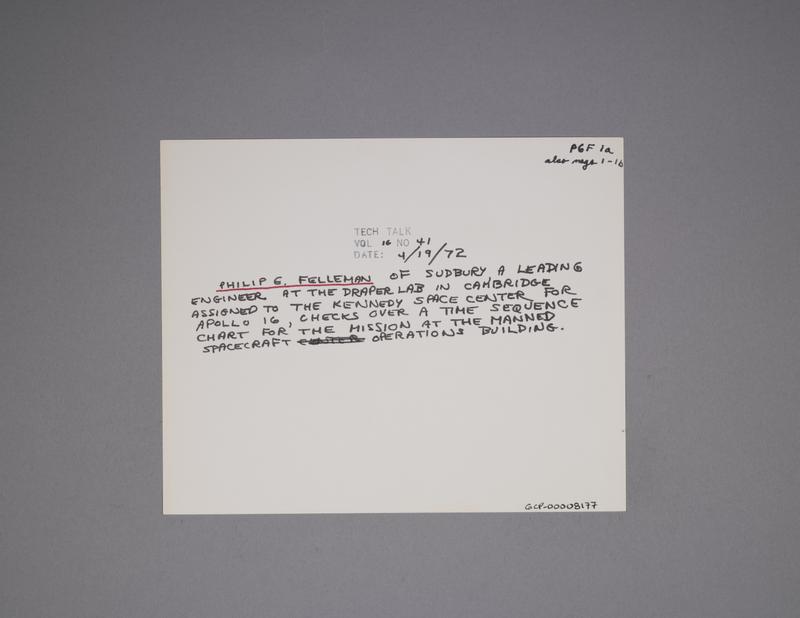 PGF 1a
also negs 1-16
TECH TALK
VOL 16 NO 41
DATE: 4/19/72
PHILIP G. FELLEMAN OF SUDBURY, A LEADING
ENGINEER AT THE DRAPER LAB IN CAMBRIDGE
ASSIGNED TO THE KENNEDY SPACE CENTER FOR
APOLLO 16, CHECKS OVER A TIME SEQUENCE
CHART FOR THE MISSION AT THE MANNED
SPACECRAFT OPERATIONS BUILDING.
GCP-00008177